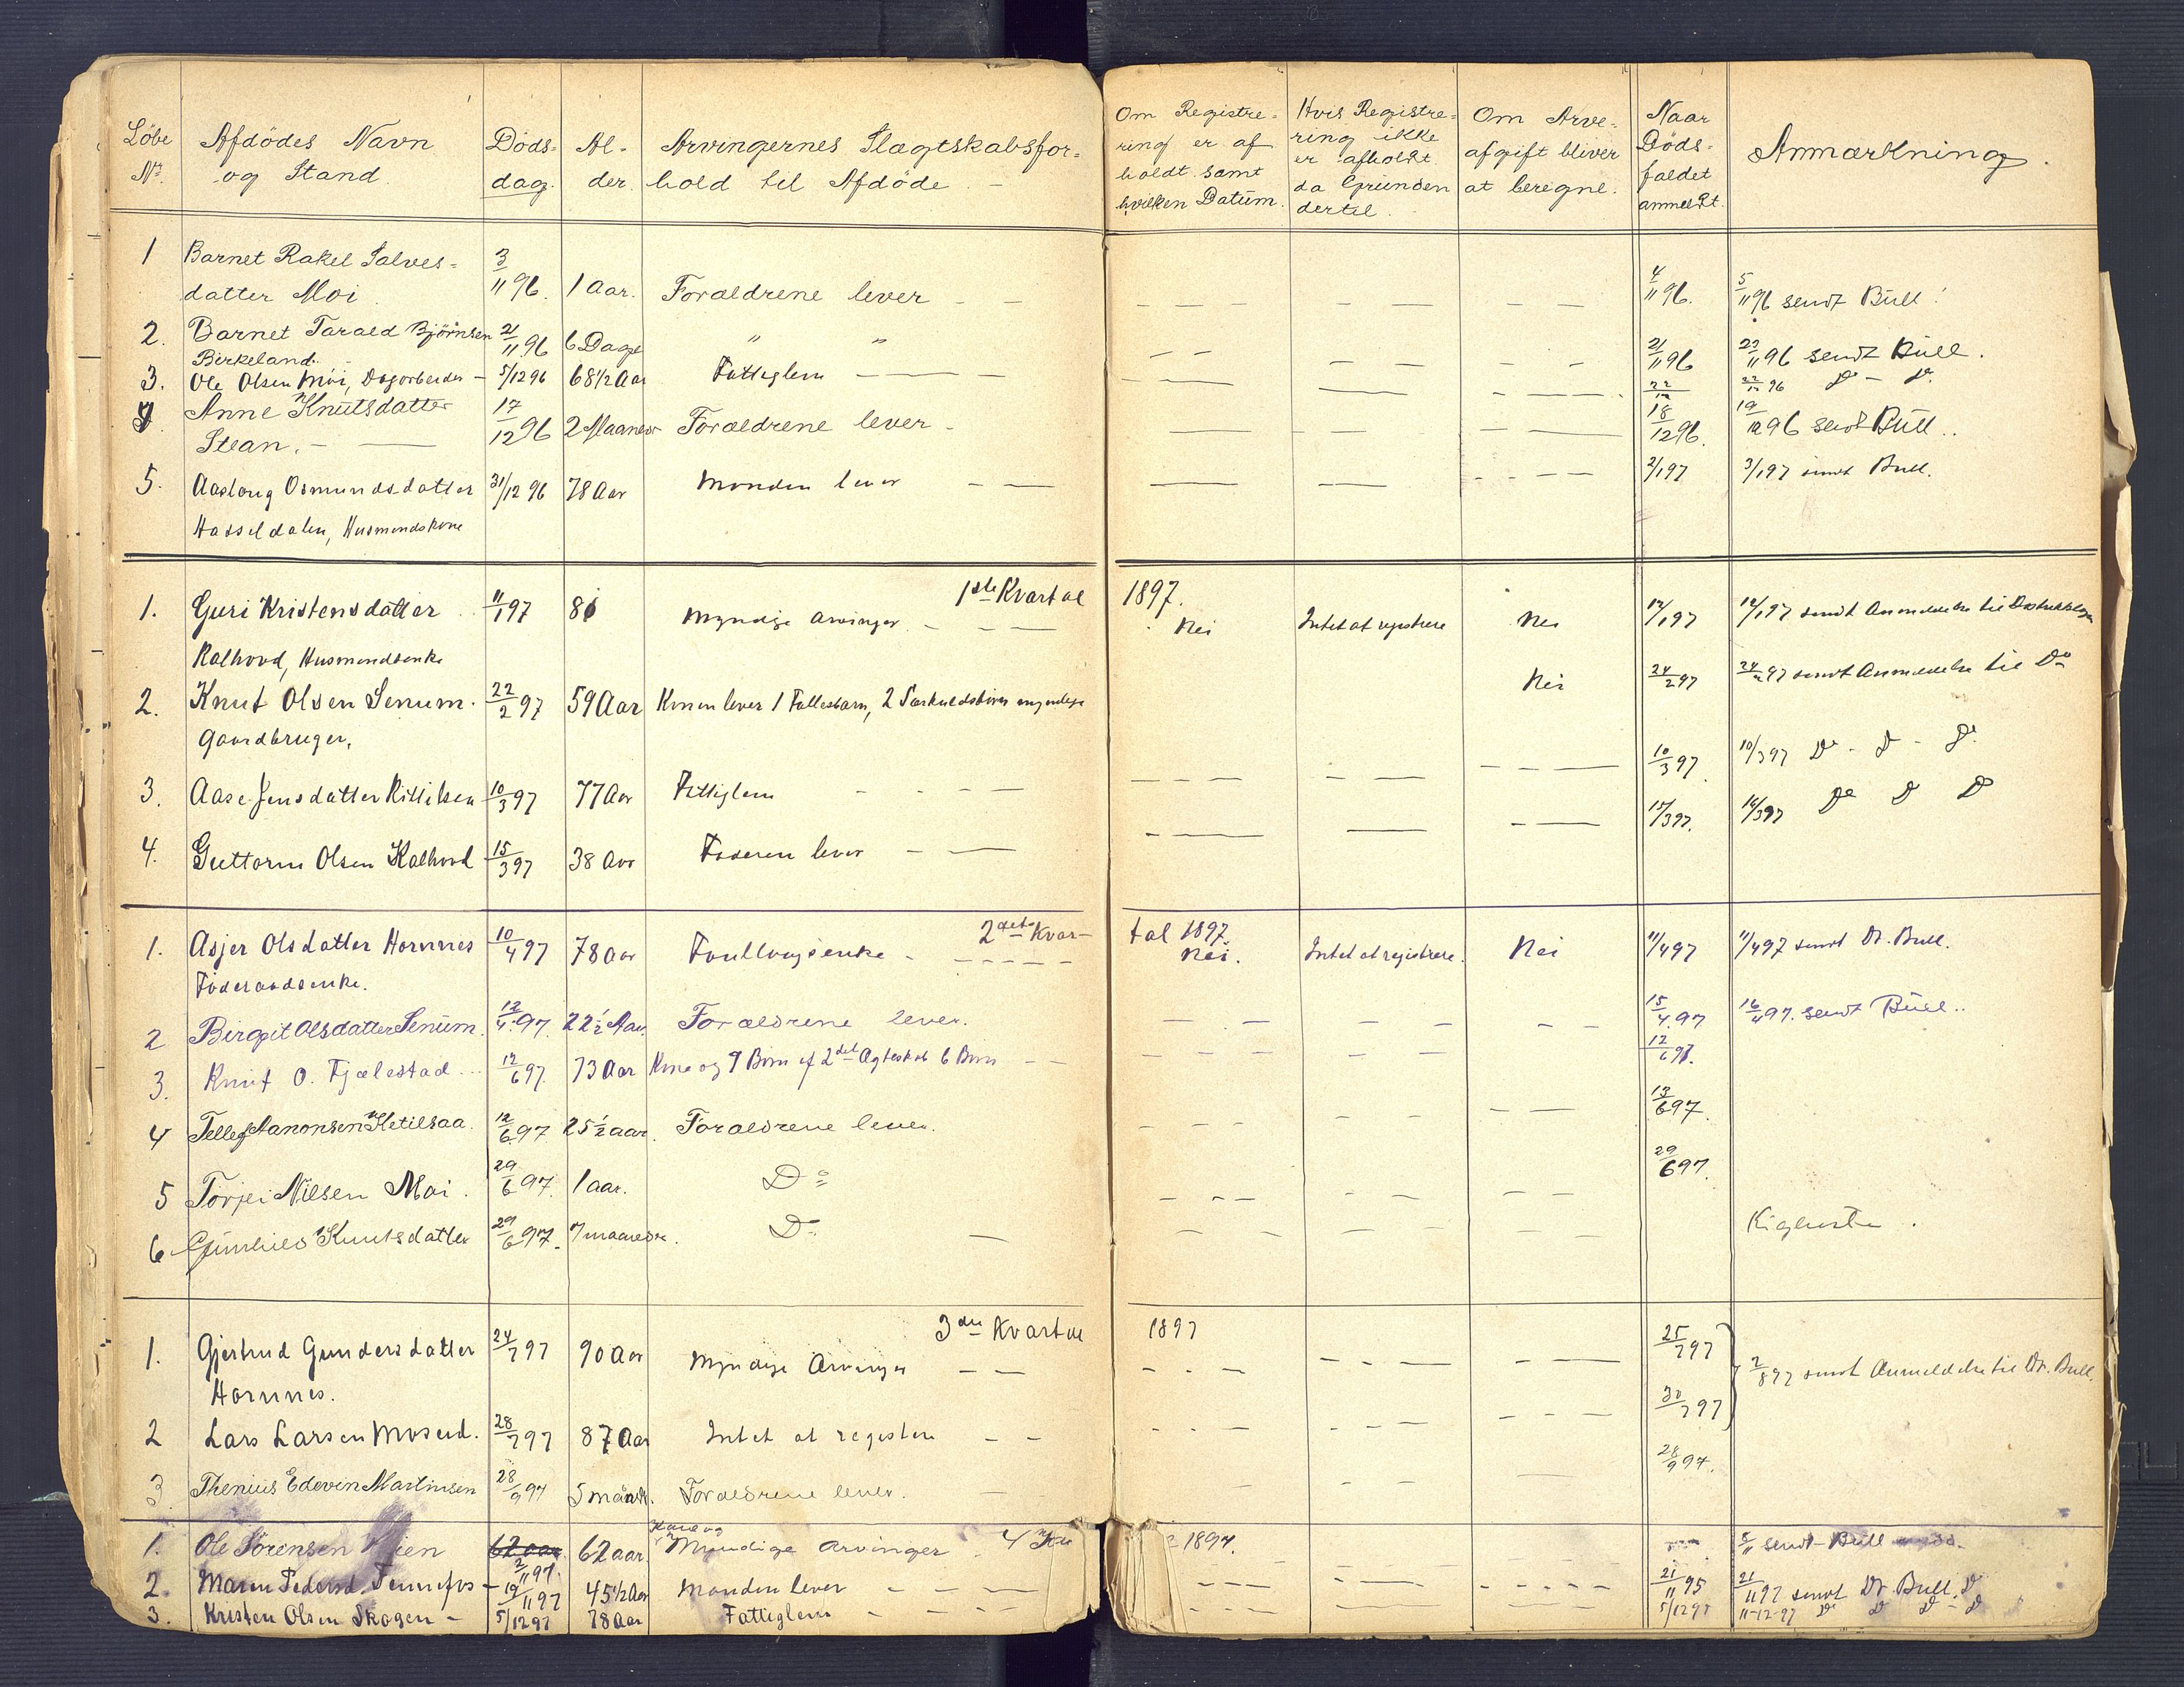 Löbe Nr. Afdödes Navn og Stand. Döds-dag. Al-der. Arvingernes Slægtskabsfor-hold til Afdöde – Om Registre-ring er af holdt samt hvilken Datum. Hvis Registre-ring ikke er afholdt da Grunden dertil. Om Arve-afgift bliver at beregne. Naar Döds-faldet anmeldt. Anmærkning.
1 Barnet Rakel Salves-
datter Moi 3/11 96. 1 Aar. Forældrene lever – – 4/11 96. 5/11 96 sendt Bull
2. Barnet Tarald Björnsen 21/11 96 6 Dage " " 21/11 96 23/11 96 sendt Bull.
Birkeland.
3. Ole Olsen Moi, Dagarbeider – 5/12 96 68 1/2 Aar Fattiglem – 22/12 22/12 96 Do – Do
4 Anne Knutsdatter 17/12 96 2 Maaneder Forældrene lever – 18/12 96. 19/12 96 sendt Bull..
Stean. –
5. Aaslaug Osmundsdatter 31/12 96 78 Aar Manden lever – – 2/1 97 3/1 97 sendt Bull.
Hasseldalen, Husmandskone
1ste Kvartal 1897.
1. Guri Kristensdatter 11/1 97 81 Myndige arvinger – Nei Intet at registrere Nei 12/1 97 12/1 97 sendt Anmeldelse til
Kalhovd, Husmandsenke
2. Knut Olsen Senum. 22/2 97 59 Aar Konen lever 1 Fællesbarn, 2 Særkuldsbørn myndige Nei 24/2 97 24/2 97 sendt Anmeldelse til Do
Gaardbruger.
3. Aase Jensdatter 10/3 97 77 Aar Fattiglem – 10/3 97. 10/3 97 Do – Do – Do
4. Guttorm Olsen Kalhovd 15/3 97 38 Aar Faderen lever – 15/3 97. 16/3 97 Do Do Do
2det Kvar-tal 1897.
1. Asjer Olsdatter Hornnes 10/4 97 78 Aar Nei. Intet at registrere. Nei 11/4 97 11/4 97 sendt Dr. Bull.
Föderaadsenke.
2 Birgit Olsdatter Senum. 12/4 97. 22 1/2 Aar Forældrene lever. 15/4 97 16/4 97. sendt Bull..
3. Knut O. Fjælestad 12/6 97. 73 Aar Kone og 9 Børn af 2det Ægteskab 6 Børn 12/6 97.
4 Tellef Aanonsen Ketilsaa 12/6 97. 25 1/2 aar. Forældrene lever. 13/6 97.
5 Torjei Nilsen Moi. 29/6 97. 1 aar. Do 29/6 97.
6 Gunhild Knutsdatter 29/6 97. 7 maaneder. Do – Kighoste.
3die Kvartal 1897
1. Gjertrud Gundersdatter 24/7 97 90 Aar Myndige Arvinger – – 25/7 97 2/8 97 sendt Anmeldelse til Dr. Bull.
Hornnes.
2 Lars Larsen Moseid. 28/7 97 87 Aar Intet at registere – – 30/7 97
3 Thenius Edevin Martinsen 28/9 97 5 Forældrene lever. 28/9 97.
1. Ole Sörensen 62 aar. 2/11 97. 62 aar. Kone og Myndige arvinger 4 1897. 5/11 sendt Bull
2. Maren Pedersd. 19/11 97 45 1/2 Aar Manden lever – – 21/11 95 21/11 97 sendt Dr. Bull. Do
3. Kristen Olsen Skogen – 5/12 97 78 Aar Fattiglem – – 5/12 97 11-12-97 Do Do Do – Do